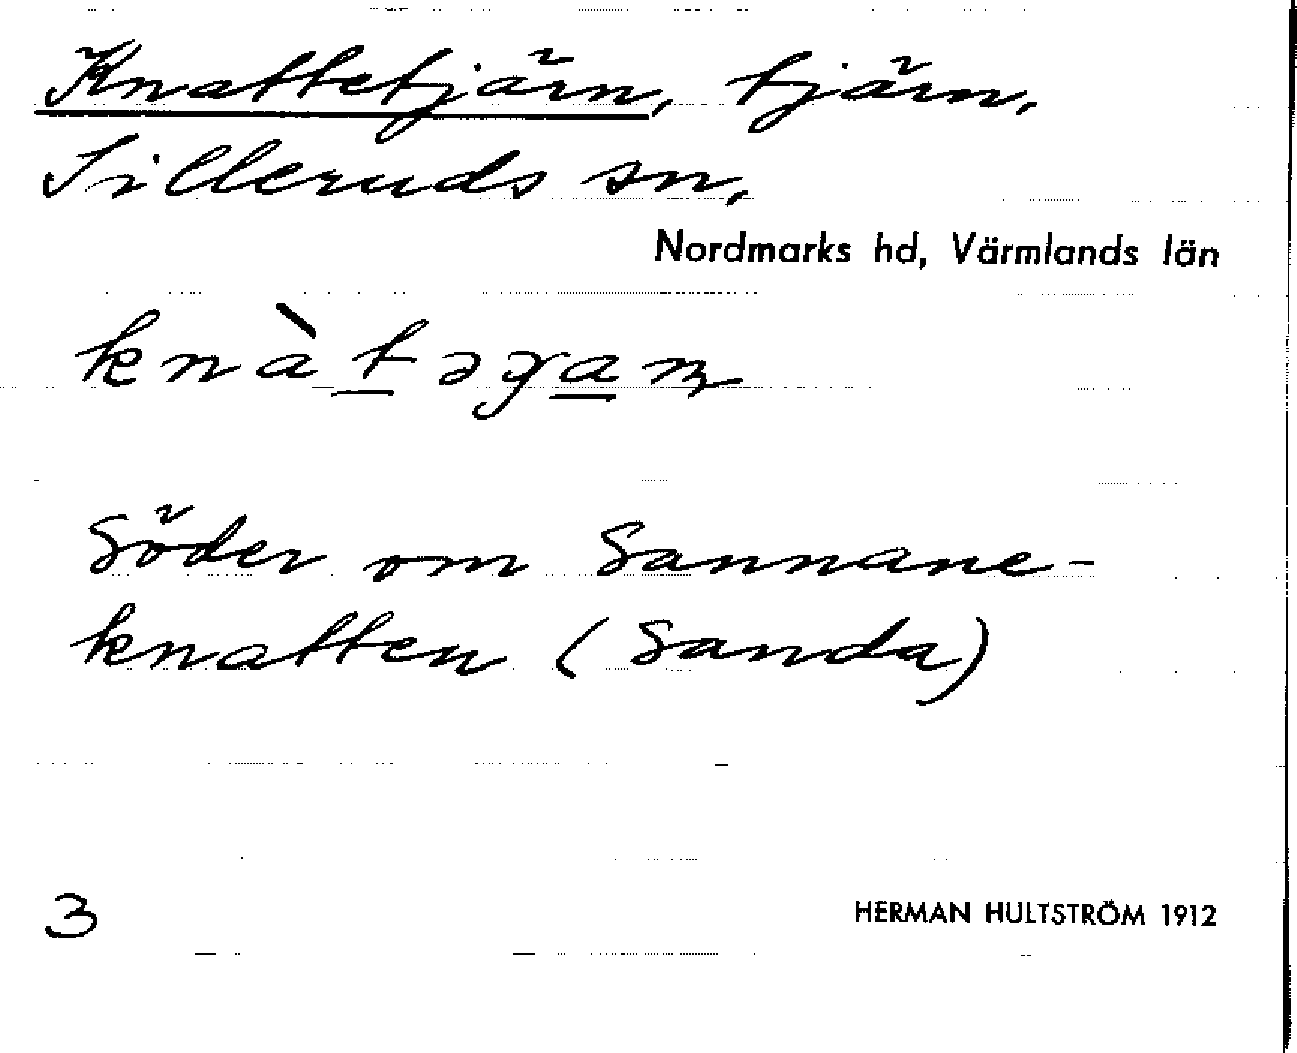 Knattetjärn, tjärn,
Silleruds sn,
Nordmarks hd, Värmlands län
Söder om Sannane-
knatten (Sanda)
3
HERMAN HULTSTRÖM 1912